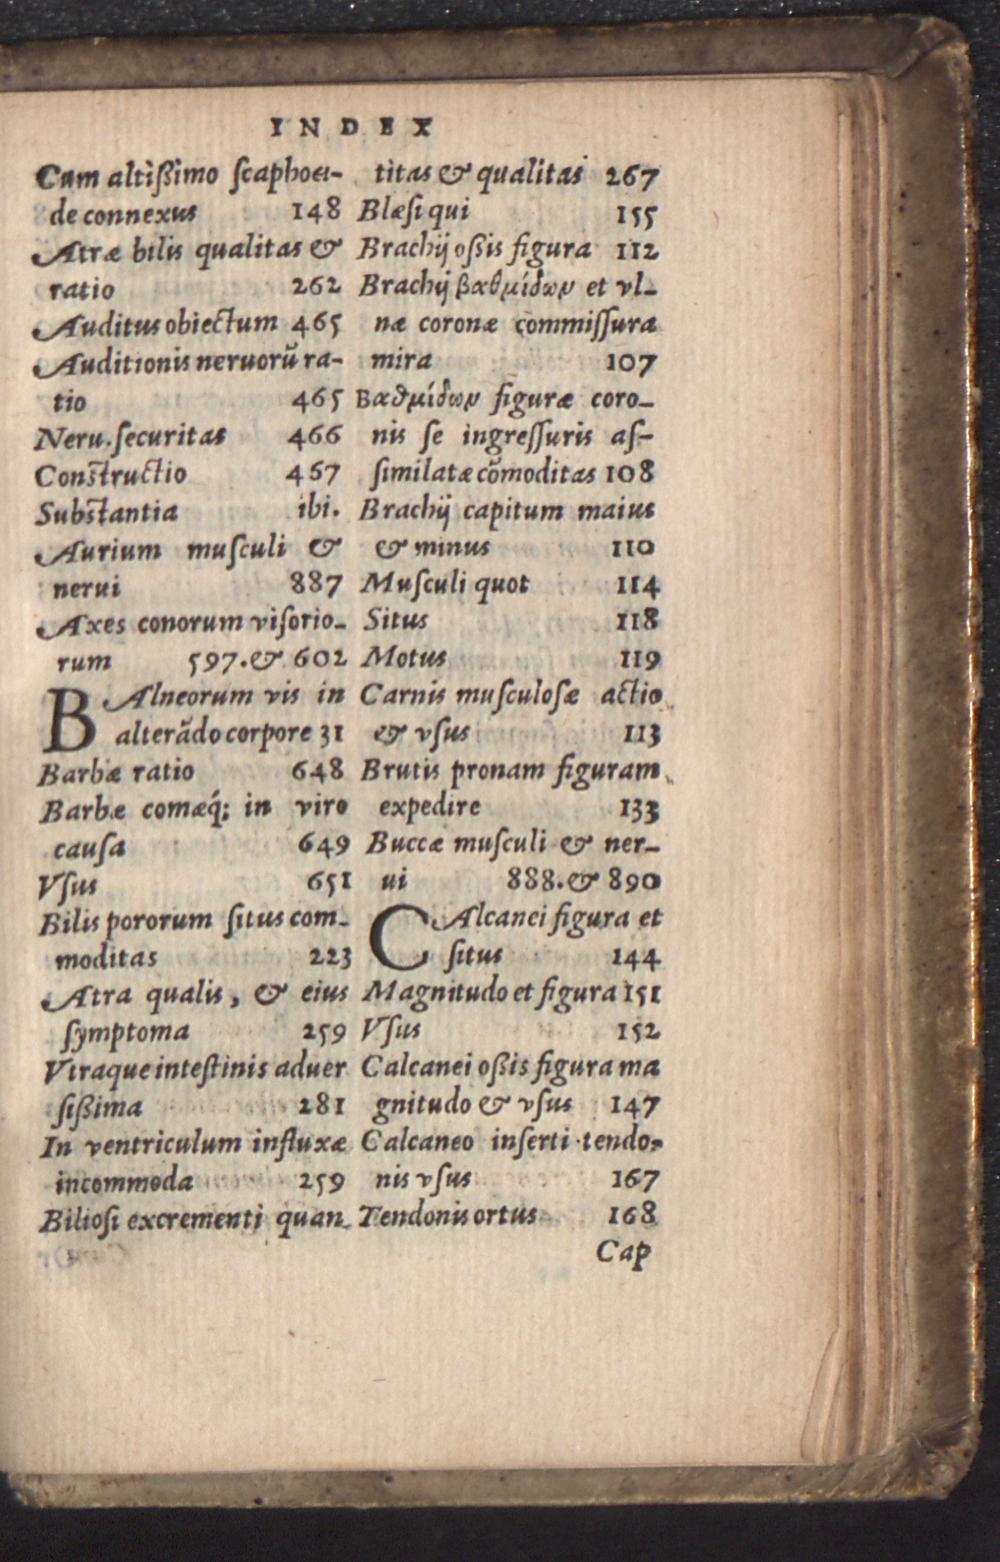 INDEX
Cum altißimo ſcaphoei-
de connexus 148
Atræ bilis qualitas &
ratio 262
Auditus obiectum 465
Auditionis neruorũ ra-
tio 465
Neru. ſecuritas 466
Conſtructio 467
Subſtantia ibi.
Aurium muſculi &
nerui 887
Axes conorum viſorio-
rum 597. & 602
BAlneorum vis in
alterãdo corpore 31
Barbæ ratio 648
Barbæ comæq́; in viro
cauſa 649
Vſus 651
Bilis pororum ſitus com-
moditas 223
Atra qualis, & eius
ſymptoma 259
Vtraque inteſtinis aduer
ſißima 281
In ventriculum influxæ
incommoda 259
Bilioſi excrementi quan-
titas & qualitas 267
Blæſi qui 155
Brachij oßis figura 112
Brachij βαθμίδων et vl-
næ coronæ commiſſura
mira 107
Βαθμίδων figuræ coro-
nis ſe ingreſſuris aſ-
ſimilatæ cõmoditas 108
Brachij capitum maius
& minus 110
Muſculi quot 114
Situs 118
Motus 119
Carnis muſculoſæ actio
& vſus 113
Brutis pronam figuram
expedire 133
Buccæ muſculi & ner-
ui 888. & 890
CAlcanei figura et
ſitus 144
Magnitudo et figura 151
Vſus 152
Calcanei oßis figura ma
gnitudo & vſus 147
Calcaneo inſerti tendo-
nis vſus 167
Tendonis ortus 168
Cap